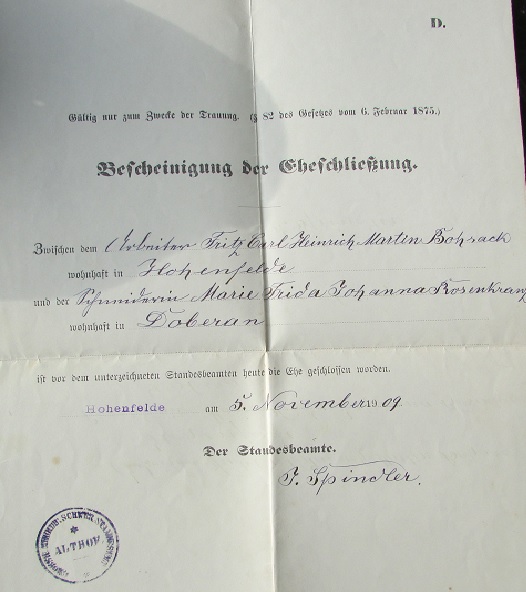 D.
Gültig nur zum Zwecke der Trauung. (§ 82 des Gesetzes vom 6. Februar 1875.)
Bescheinigung der Eheschließung.
Zwischen dem Arbeiter Fritz Carl Heinrich Martin Bohsack
wohnhaft in Hohenfelde
und der Schneiderin Marie Frida Johanna Rosenkranz
wohnhaft in Doberan
ist vor dem unterzeichneten Standesbeamten heute die Ehe geschlossen worden.
Hohenfelde am 5. November 1909
Der Standesbeamte.
J. Spindler.
ALTHOF